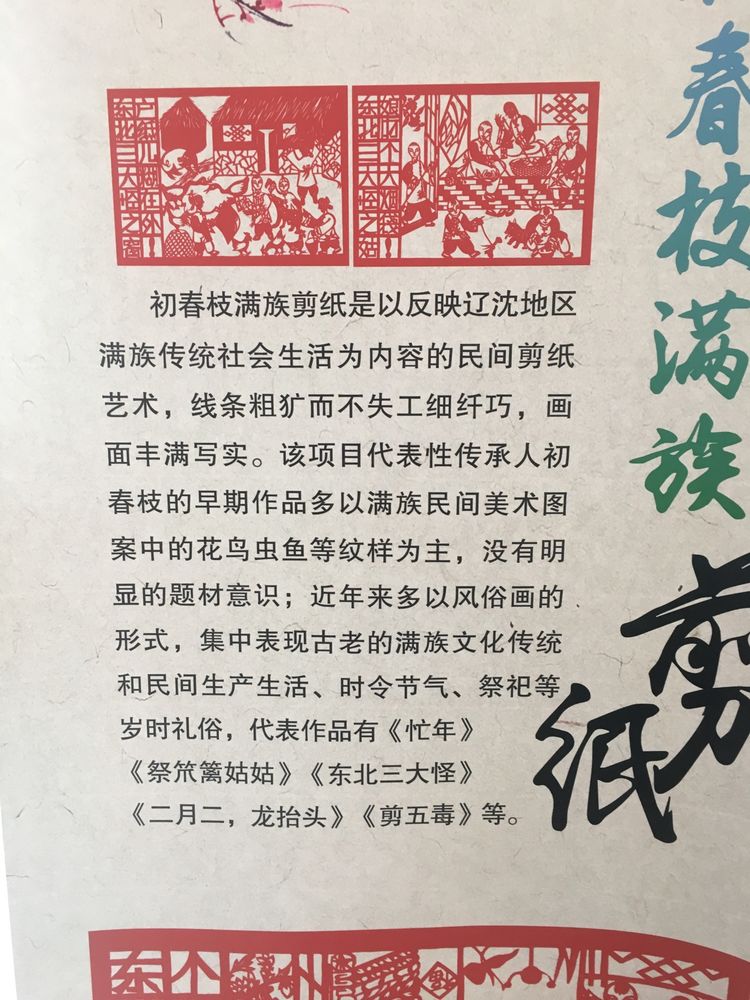 东北三大怪之窗
户纸儿糊在外
东北三大怪之姑
娘叼个大烟袋
春枝满族
剪纸
初春枝满族剪纸是以反映辽沈地区
满族传统社会生活为内容的民间剪纸
艺术，线条粗犷而不失工细纤巧，画
面丰满写实。该项目代表性传承人初
春枝的早期作品多以满族民间美术图
案中的花鸟虫鱼等纹样为主，没有明
显的题材意识；近年来多以风俗画的
形式，集中表现古老的满族文化传统
和民间生产生活、时令节气、祭祀等
岁时礼俗，代表作品有《忙年》
《祭笊篱姑姑》《东北三大怪》
《二月二，龙抬头》《剪五毒》等。